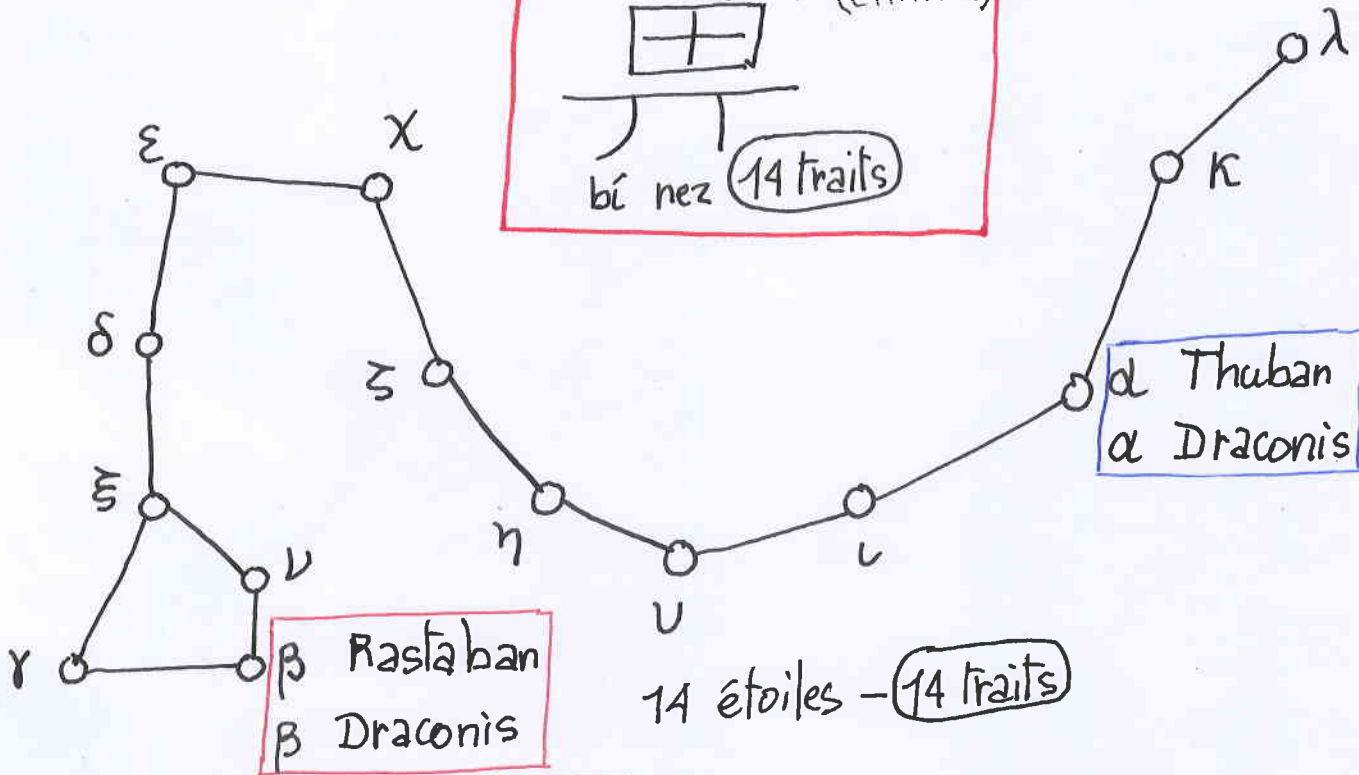 λ
χ
ε
κ
bí nez 14 traits
δ
ζ
α Thuban
α Draconis
ξ
η
ι
ν
υ
γ
β Rastaban
β Draconis
14 étoiles – 14 traits